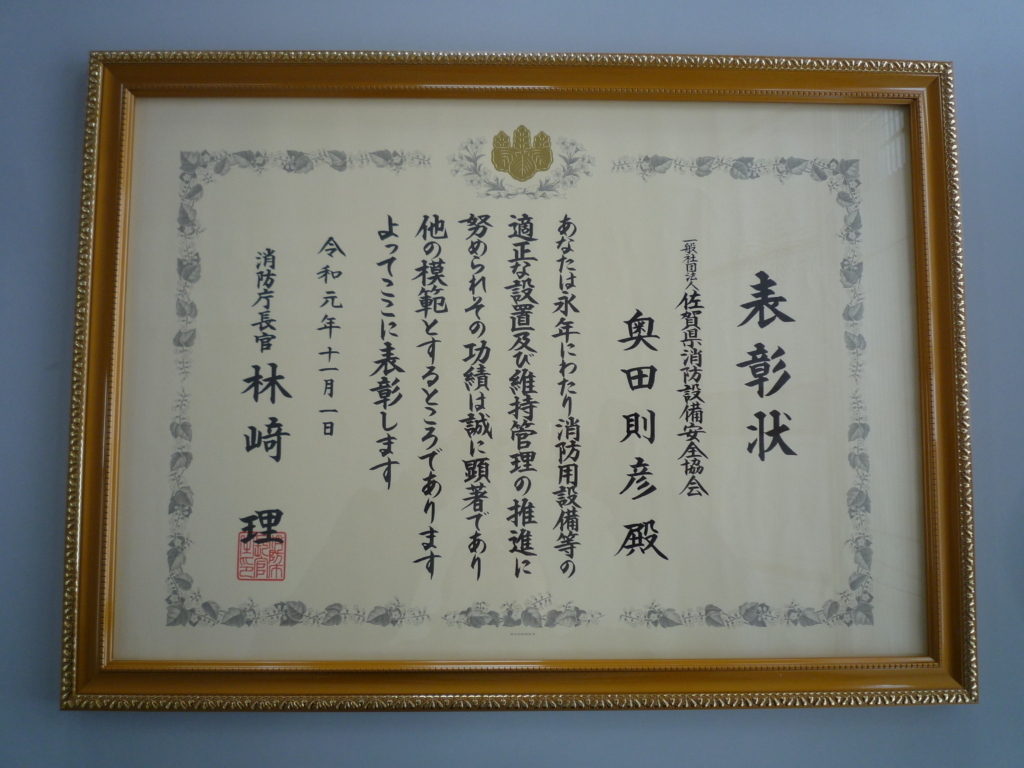 表彰状
一般社団法人佐賀県消防設備安全協会
奥田則彦殿
あなたは永年にわたり消防用設備等の
適正な設置及び維持管理の推進に
努められその功績は誠に顕著であり
他の模範とするところであります
よってここに表彰します
令和元年十一月一日
消防庁長官 林﨑 理